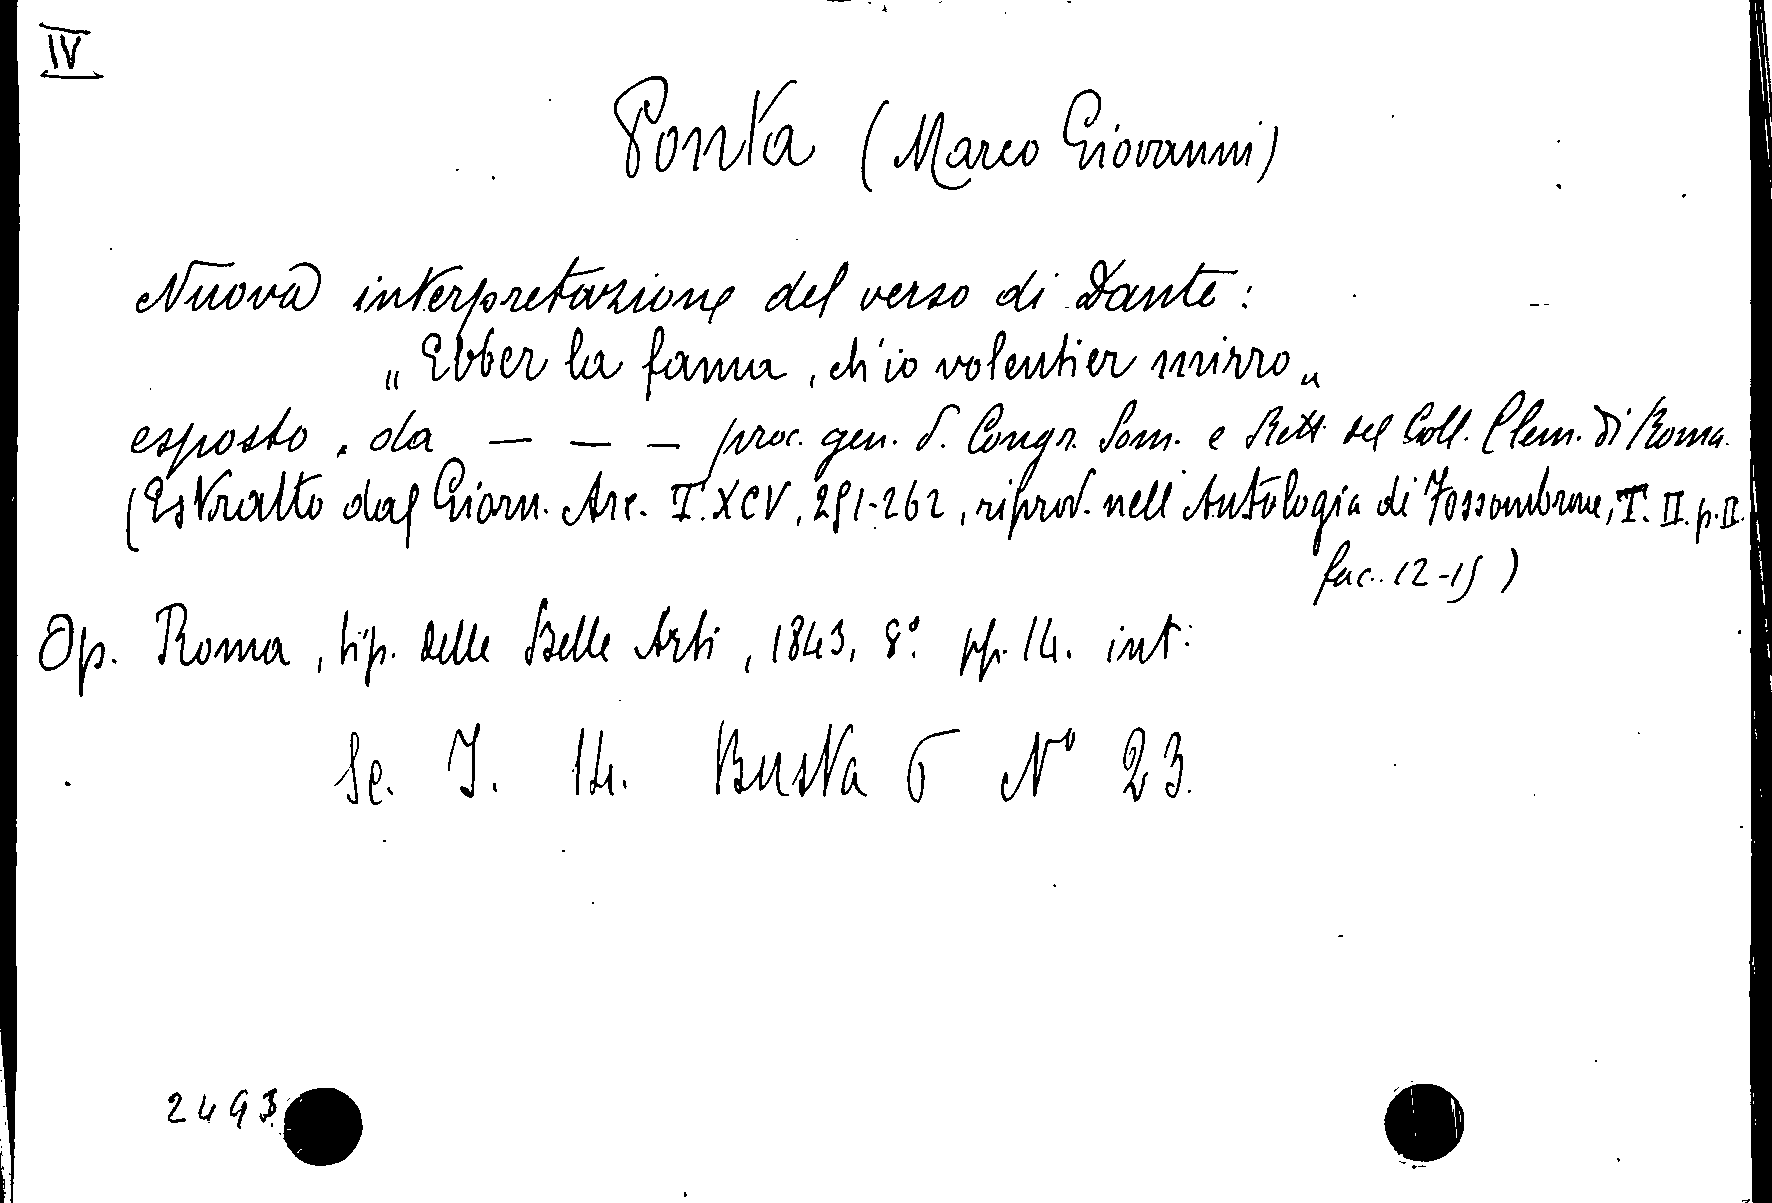 IV
Ponta (Marco Giovanni)
Nuova interpretazione del verso di Dante:
„ Ebber la fama, ch'io volentier mirro „
esposto. da — — — proc. gen. d. Congr. Som. e Rett. del Coll. Clem. di Roma.
(Estratto dal Giorn. Arc. T. XCV, 251-262, riprod. nell'Antologia di Fossombrone, T. II. p. II.
fac. 12-15)
Op. Roma, tip. delle Belle Arti, 1843, 8º. pp. 14. int:
Sc. I. 14. Busta 6 Nº 23.
2493